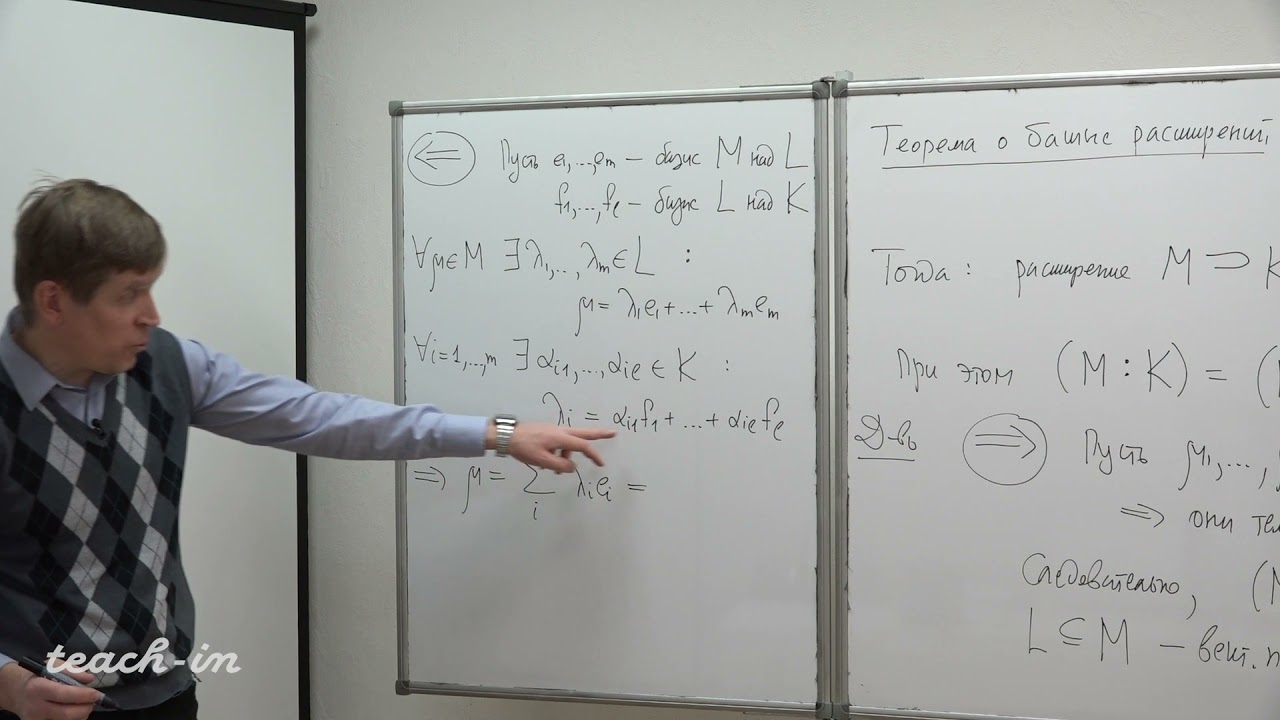 ⇐ Пусть e₁,...,eₘ – базис M над L
f₁,...,fₗ – базис L над K
∀μ∈M ∃λ₁,...,λₘ∈L :
μ = λ₁e₁+...+λₘeₘ
∀i=1,...,m ∃αᵢ₁,...,αᵢₗ ∈ K :
λᵢ = αᵢ₁f₁+...+αᵢₗfₗ
⇒ μ = ∑ᵢ λᵢeᵢ =
Теорема о башне расширений
Тогда: расширение M ⊃ K
При этом (M : K) = (
Д-во ⇒ Пусть μ₁,...,
⇒ они
Следовательно, (
L ⊆ M – вект.
teach-in